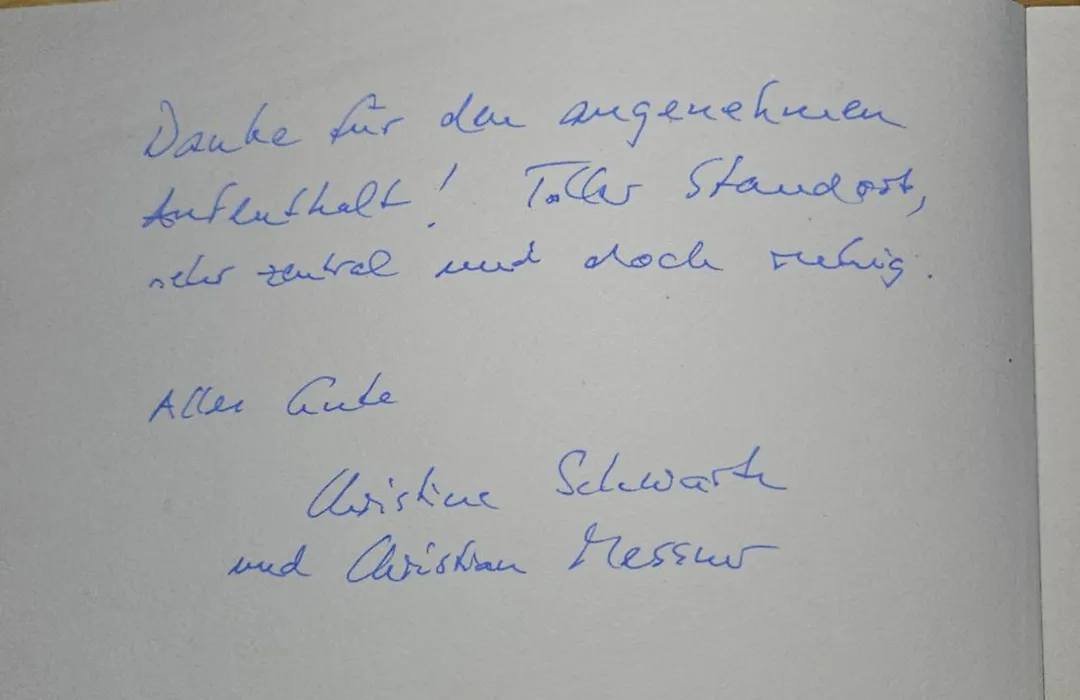 Danke für den angenehmen
Aufenthalt! Toller Standort,
sehr zentral und doch ruhig.
Alles Gute
Christine Schwartz
und Christian Messner